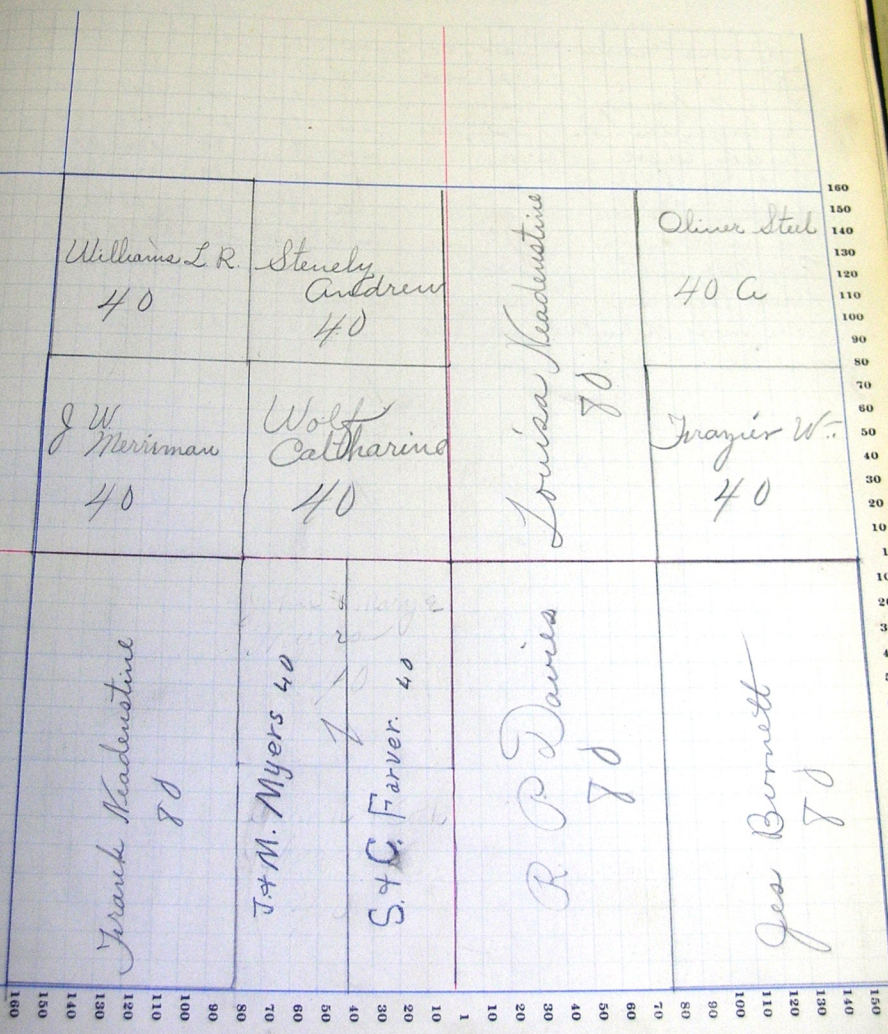 Williams L. R.
40
Stenely
Andrew
40
Louisa Neadenstine
80
Oliver Steel
40 a
J W
Merriman
40
Wolf
Caltharine
40
Frazier Wm
40
Frank Neadenstine
80
J. & M. Myers 40
S. & C. Farver. 40
R. P Davies
80
Jes Burnett
80
160
150
140
130
120
110
100
90
80
70
60
50
40
30
20
10
1
10
160 150 140 130 120 110 100 90 80 70 60 50 40 30 20 10 1 10 20 30 40 50 60 70 80 90 100 110 120 130 140 150